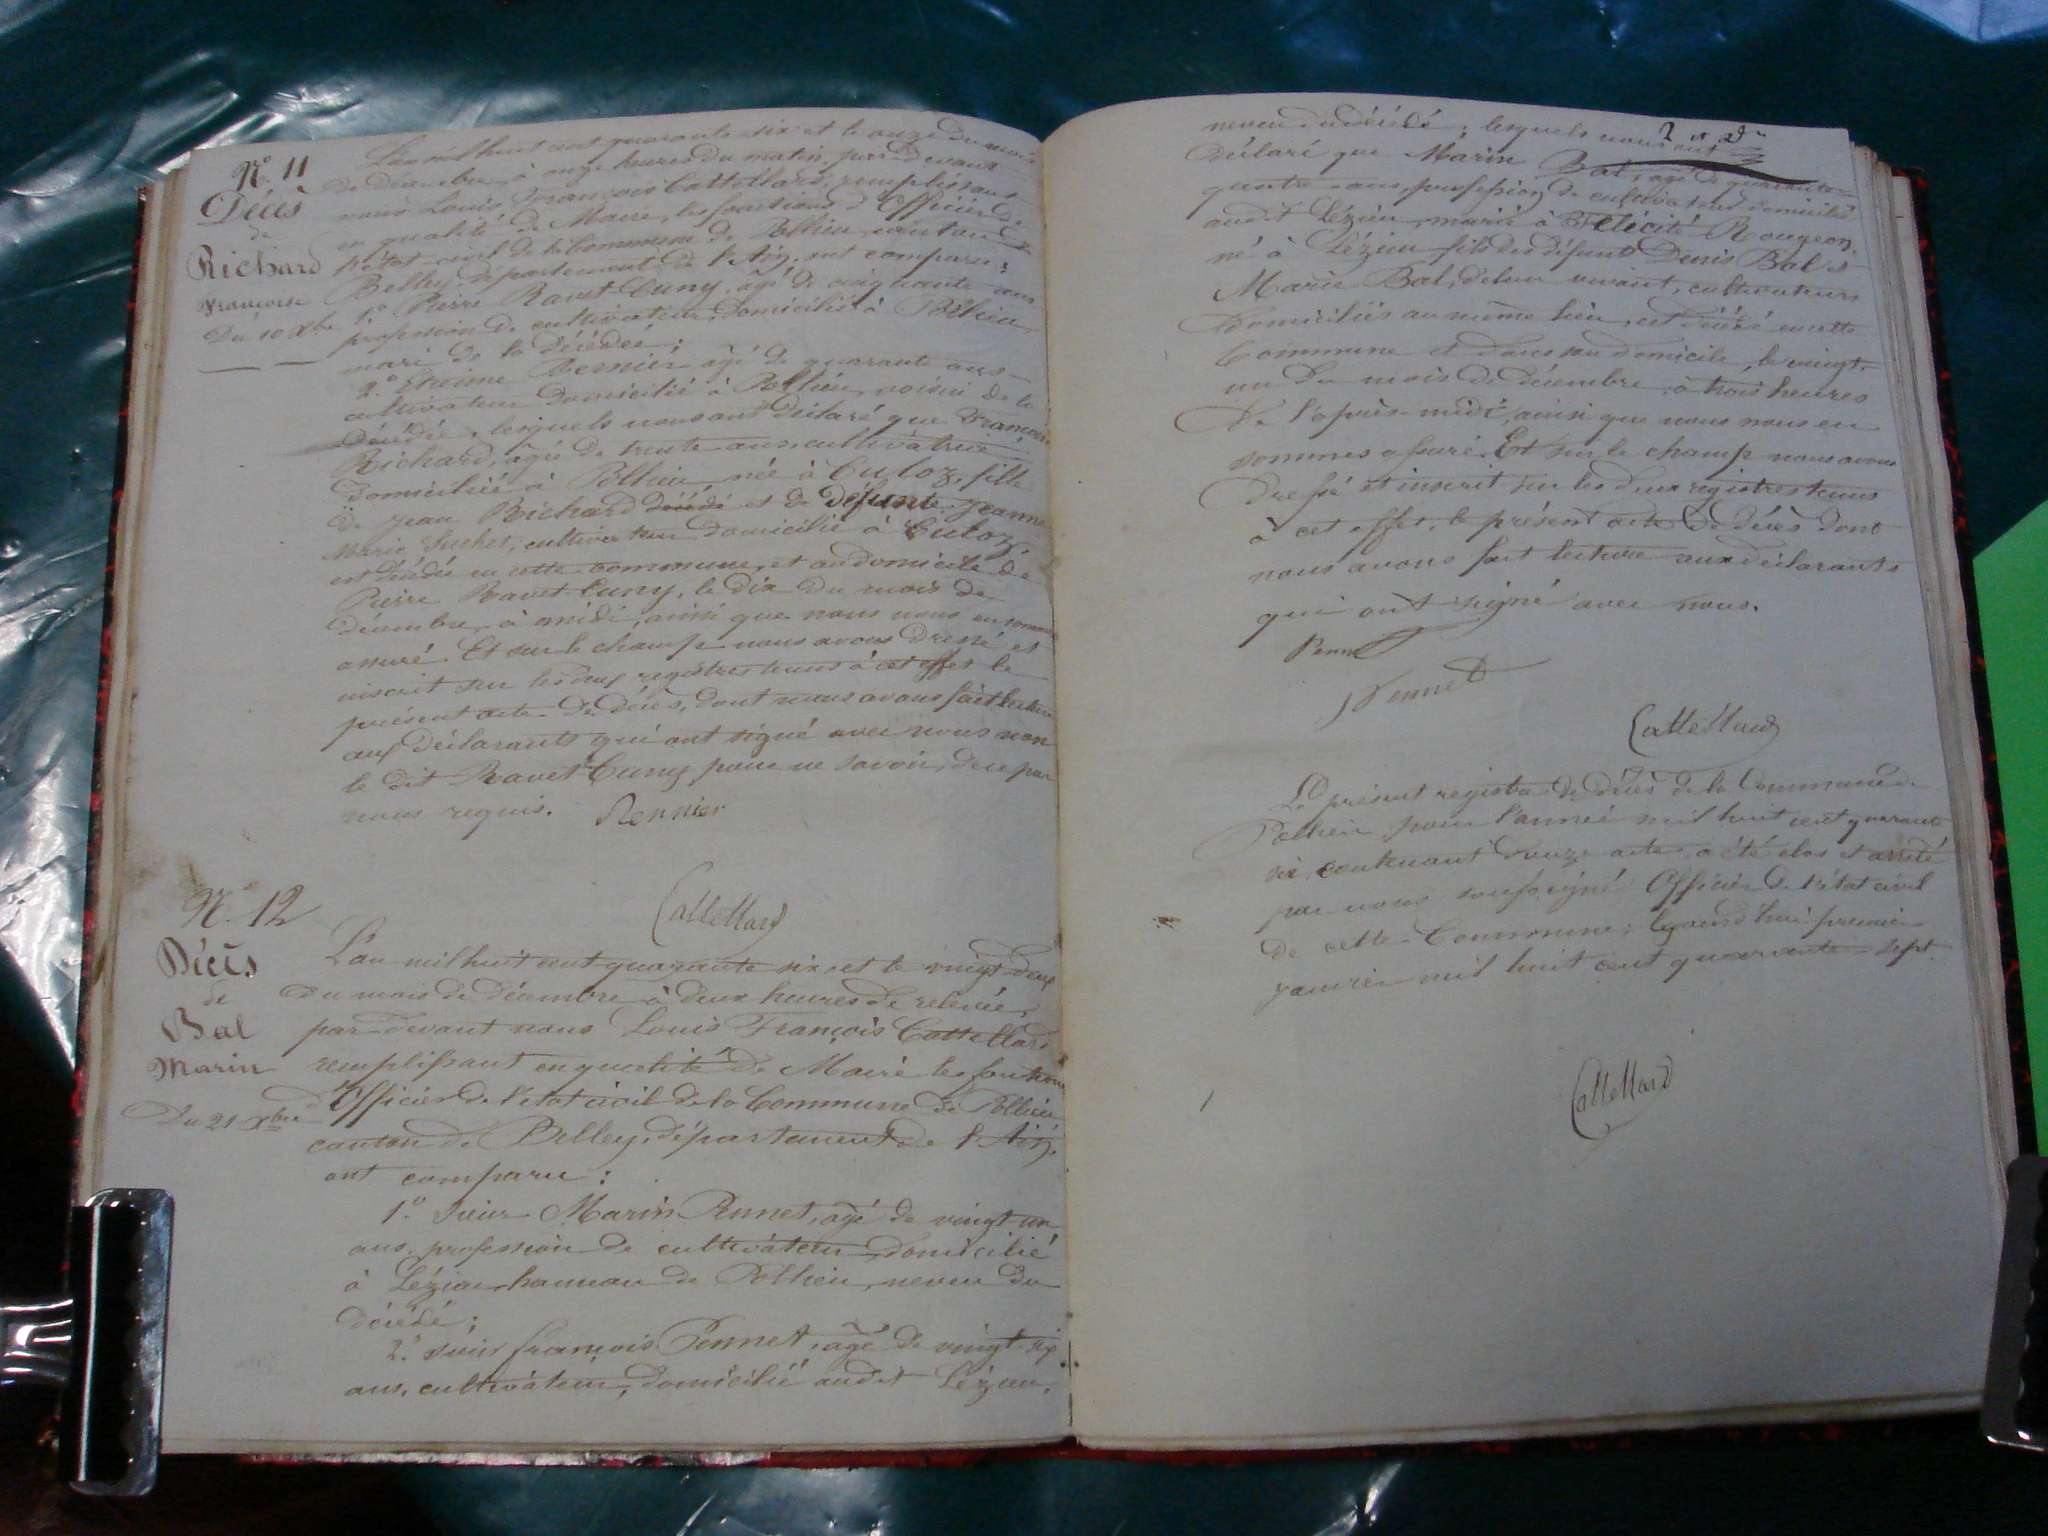 N.° 11
Décès
de
Richard
Françoise
Du 10 Xbre
L'an mil huit cent quarante six et le onze du mois
de décembre, à onze heures du matin, par devant
nous Louis François Cattelard, remplissant
en qualité de Maire, les fonctions d'Officier de
l'état civil de la Commune de Pollieu, canton de
Belley, département de l'Ain, ont comparu:
1.° Pierre Ravet Cuny, âgé de cinquante ans
profession de cultivateur, domicilié à Pollieu,
mari de la décédée;
2.° Etienne Bernier âgé de quarante ans
cultivateur domicilié à Pollieu, voisin de la
décédée, lesquels nous ont déclaré que Françoise
Richard, âgée de trente ans, cultivatrice,
domiciliée à Pollieu, née à Culoz, fille
de Jean Richard décédé et de défunte Jeanne
Marie Suchet, cultivateur domicilié à Culoz,
est décédée en cette commune, et au domicile de
Pierre Ravet Cuny, le dix du mois de
décembre, à midi, ainsi que nous nous en sommes
assuré. Et sur le champ nous avons dressé et
inscrit sur les deux registres tenus à cet effet le
présent acte de décès, dont nous avons fait lecture
aux déclarants qui ont signé avec nous non
le dit Ravet Cuny pour ne savoir, de ce par
nous requis.
Cattellard
N.° 12
Décès
de
Bal
Marin
Du 21 Xbre
L'an mil huit cent quarante six, et le vingt-deux
du mois de décembre à deux heures de relevée,
par devant nous Louis François Cattellard,
remplissant en qualité de Maire les fonctions
d'Officier de l'état civil de la Commune de Pollieu
canton de Belley, département de l'Ain,
ont comparu:
1.° sieur Marin Pennet, âgé de vingt un
ans, profession de cultivateur, domicilié
à Lézieu hameau de Pollieu, neveu du
décédé;
2.° sieur françois Pennet, âgé de vingt-six
ans, cultivateur, domicilié audit Lézieu,
neveu du décédé; lesquels nous ont
déclaré que Marin Bal, âgé de quarante
quatre ans, profession de cultivateur domicilié
audit Lézieu, marié à Félicité Rougeon,
né à Lézieu fils des défunts Denis Bal et
Marie Bal, de leur vivant, cultivateurs
domiciliés au même lieu, est décédé en cette
Commune et dans son domicile, le vingt-
un du mois de décembre à trois heures
de l'après-midi, ainsi que nous nous en
sommes assuré. Et sur le champ nous avons
dressé et inscrit sur les deux registres tenus
à cet effet, le présent acte de décès dont
nous avons fait lecture aux déclarants
qui ont signé avec nous.
Pennet
Pennet
Cattellard
Le présent registre de décès de la Commune de
Pollieu pour l'année mil huit cent quarante
six, contenant douze actes, a été clos et arrêté
par nous soussigné Officier de l'état civil
de cette Commune; le jourd'hui premier
janvier mil huit cent quarante-sept.
Cattellard